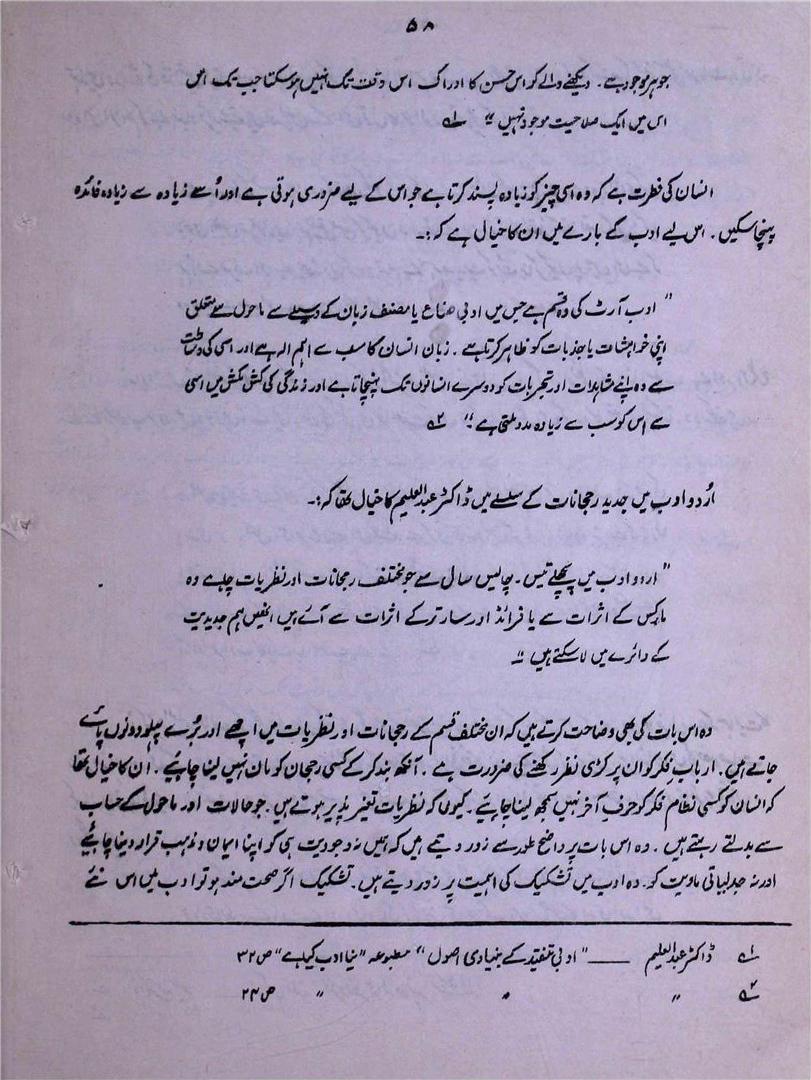 ۵۸
جوہر موجود ہے۔ دیکھنے والے کو اس حسن کا ادراک اس وقت تک نہیں ہو سکتا جب تک اس
اس میں ایک صلاحیت موجود نہیں" ؎۱
انسان کی فطرت ہے کہ وہ اسی چیز کو زیادہ پسند کرتا ہے جو اس کے لیے ضروری ہوتی ہے اور اُسے زیادہ سے زیادہ فائدہ
پہنچا سکیں۔ اس لیے ادب کے بارے میں ان کا خیال ہے کہ:۔
"ادب آرٹ کی وہ قسم ہے جس میں ادبی صناع یا مصنف زبان کے وسیلے سے ماحول سے متعلق
اپنی خواہشات یا جذبات کو ظاہر کرتا ہے۔ زبان انسان کا سب سے اہم الہ ہے اور اسی کی وساطت
سے وہ اپنے مشاہدات اور تجربات کو دوسرے انسانوں تک پہنچاتا ہے اور زندگی کی کش مکش میں اسی
سے اس کو سب سے زیادہ مدد ملتی ہے" ؎۲
اُردو ادب میں جدید رجحانات کے سلسلے میں ڈاکٹر عبدالعلیم کا خیال تھا کہ:۔
"اردو ادب میں پچھلے تیس۔ چالیس سال سے جو مختلف رجحانات اور نظریات چاہے وہ
مارکس کے اثرات سے یا فرائڈ اور سارتر کے اثرات سے آئے ہیں انھیں ہم جدیدیت
کے دائرے میں لا سکتے ہیں"
وہ اس بات کی بھی وضاحت کرتے ہیں کہ ان مختلف قسم کے رجحانات اور نظریات میں اچھے اور بُرے پہلو دونوں پائے
جاتے ہیں۔ ارباب فکر کو ان پر کڑی نظر رکھنے کی ضرورت ہے۔ آنکھ بند کر کے کسی رجحان کو مان نہیں لینا چاہیے۔ ان کا خیال تھا
کہ انسان کو کسی نظام فکر کو حرف آخر نہیں سمجھ لینا چاہیے۔ کیوں کہ نظریات تغیر پذیر ہوتے ہیں۔ جو حالات اور ماحول کے حساب
سے بدلتے رہتے ہیں۔ وہ اس بات پر واضح طور سے زور دیتے ہیں کہ ہمیں نہ وجودیت ہی کو اپنا ایمان و مذہب قرار دینا چاہیے
اور نہ جدلیاتی مادیت کو۔ وہ ادب میں تشکیک کی اہمیت پر زور دیتے ہیں۔ تشکیک اگر صحت مند ہو تو ادب میں اس نئے
؎۱ ڈاکٹر عبدالعلیم —— "ادبی تنقید کے بنیادی اصول" مطبوعہ "نیا ادب کیا ہے" ص ۳۲
؎۲ " " " ص ۲۴